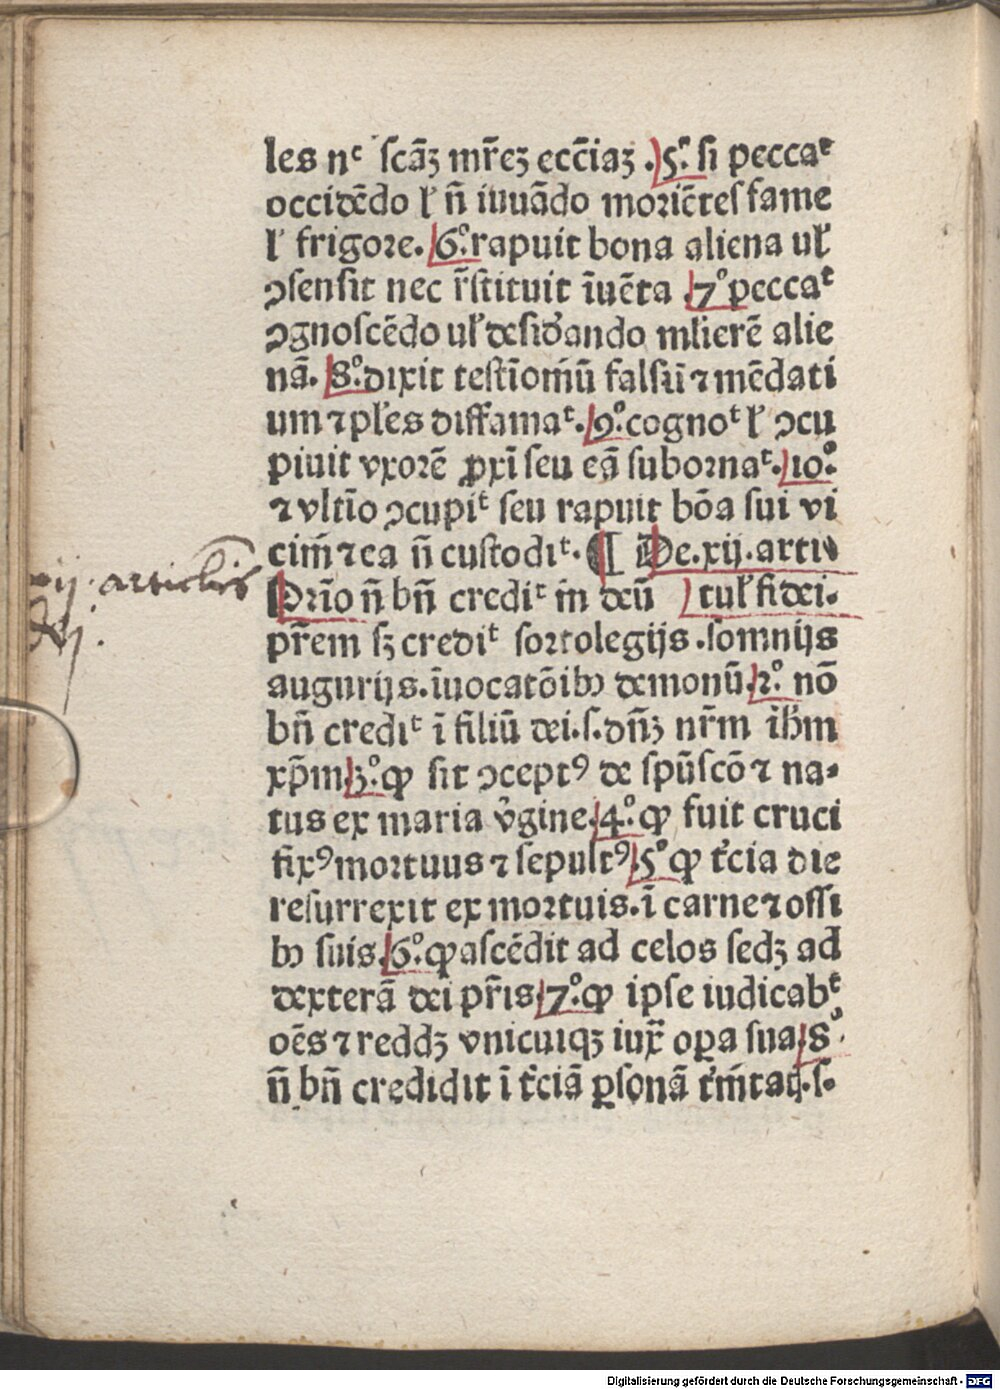 les nᶜ ſcā̄ꝫ mr̄eꝫ ecc̄iaꝫ .5º ſi peccaᵗ
occidēdo ł n̄ iuuādo moriētes fame
ł frigore. 6º. rapuit bona aliena uł
ꝯſenſit nec r̄ſtituit īuēta 7º peccaᵗ
ꝯgnoſcēdo uł deſiđando mlierē alie
nā. 8º. dixit teſtīom̄ū falſū ⁊ mēdati
um ⁊ płes diffamaᵗ. 9º. cognoᵗ ł ꝯcu
piuit vxorē ꝓxī ſeu eā ſubornaᵗ. 10º
⁊ vltīo ꝯcupiᵗ ſeu rapuit bōa ſui vi
cim̄ ⁊ ea n̄ cuſtodiᵗ. ¶ De.xij.arti
xij. articlis
Prīo n̄ bn̄ crediᵗ in deū tuł fidei.
pr̄em ſꝫ crediᵗ ſortolegijs .ſomnijs
augurijs. īuocatōibꝰ demonū. 2º. nō
bn̄ crediᵗ ī filiū dei.ſ.dn̄ꝫ nr̄m ih̄m
xp̄m 3º. ꝙ ſit ꝯceptꝰ de ſpūſcō ⁊ na⸗
tus ex maria v̄gine. 4º. ꝙ fuit cruci
fixꝰ mortuus ⁊ ſepultꝰ. 5º ꝙ t̄cia die
reſurrexit ex mortuis. ī carne ⁊ oſſi
bꝰ ſuis. 6º. ꝙ aſcēdit ad celos ſedꝫ ad
dexterā dei pr̄is 7º. ꝙ ipſe iudicabᵗ
oēs ⁊ reddꝫ vnicuiqꝫ iux̄ oꝑa ſua. 8º.
n̄ bn̄ credidit ī t̄ciā ꝑſonā t̄m̄taꝶ.ſ.
Digitalisierung gefördert durch die Deutsche Forschungsgemeinschaft - DFG